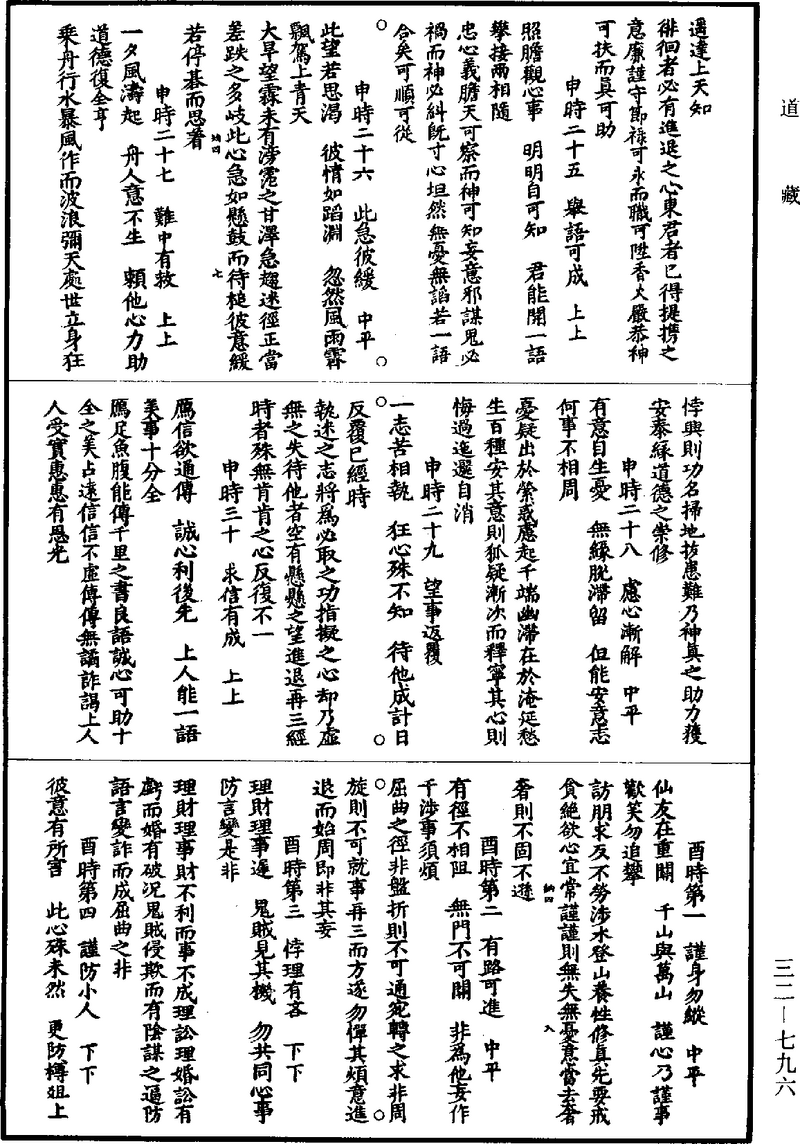 道藏
遥達上天知
徘徊者必有進退之心東君者已得提携之
意廉謹守節祿可永而職可陞香火嚴恭神
可扶而真可助
申時二十五　舉語可成　上上
照膽觀心事　明明自可知　君能開一語
攀接兩相隨
忠心義膽天可察而神可知妄意邪謀鬼必
禍而神必糾旣寸心坦然無憂無諂若一語
合矣可順可從
申時二十六　此急彼緩　中平
此望若思渴　彼情如蹈淵　忽然風雨霽
飄駕上青天
大旱望霖未有滂霑之甘澤急趨迷徑正當
差跌之多岐此心急如懸鼓而待槌彼意緩
若停棊而思著
納四　七
申時二十七　難中有救　上上
一夕風濤起　舟人意不生　賴他心力助
道德復全亨
乘舟行水暴風作而波浪彌天處世立身狂
悖興則功名掃地拔患難乃神真之助力獲
安泰緣道德之崇修
申時二十八　慮心漸解　中平
有意自生憂　無緣脫滯留　但能安意志
何事不相周
憂疑出於縈惑慮起千端幽滯在於淹延愁
生百種安其意則狐疑漸次而釋寧其心則
悔過迤邐自消
申時二十九　望事返覆
一志苦相執　狂心殊不知　待他成計日
反覆已經時
執迷之志將爲必取之功指擬之心却乃虛
無之失待他者空有懸懸之望進退再三經
時者殊無肯肯之心反復不一
申時三十　求信有成　上上
鴈信欲通傳　誠心利後先　上人能一語
美事十分全
鴈足魚腹能傳千里之書良語誠心可助十
全之美占遠信信不虛傳傳無譎詐謁上人
人受實惠惠有恩光
酉時第一　謹身勿縱　中平
仙友在重關　千山與萬山　謹心乃謹事
歡笑勿追攀
訪朋求友不勞涉水登山養性修真先要戒
貪絶欲心宜常謹謹則無失無憂意當去奢
奢則不固不遜
納四　八
酉時第二　有路可進　中平
有徑不相阻　無門不可關　非爲他妄作
干涉事須煩
屈曲之徑非盤折則不可通宛轉之求非周
旋則不可就事再三而方遂勿憚其煩意進
退而始周即非其妄
酉時第三　悖理有吝　下下
理財理事遲　鬼賊見其機　勿共同心事
防言變是非
理財理事財不利而事不成理訟理婚訟有
虧而婚有破况鬼賊侵欺而有陰謀之逼防
語言變詐而成屈曲之非
酉時第四　謹防小人　下下
彼意有所害　此心殊未然　更防樽俎上
三二—七九六